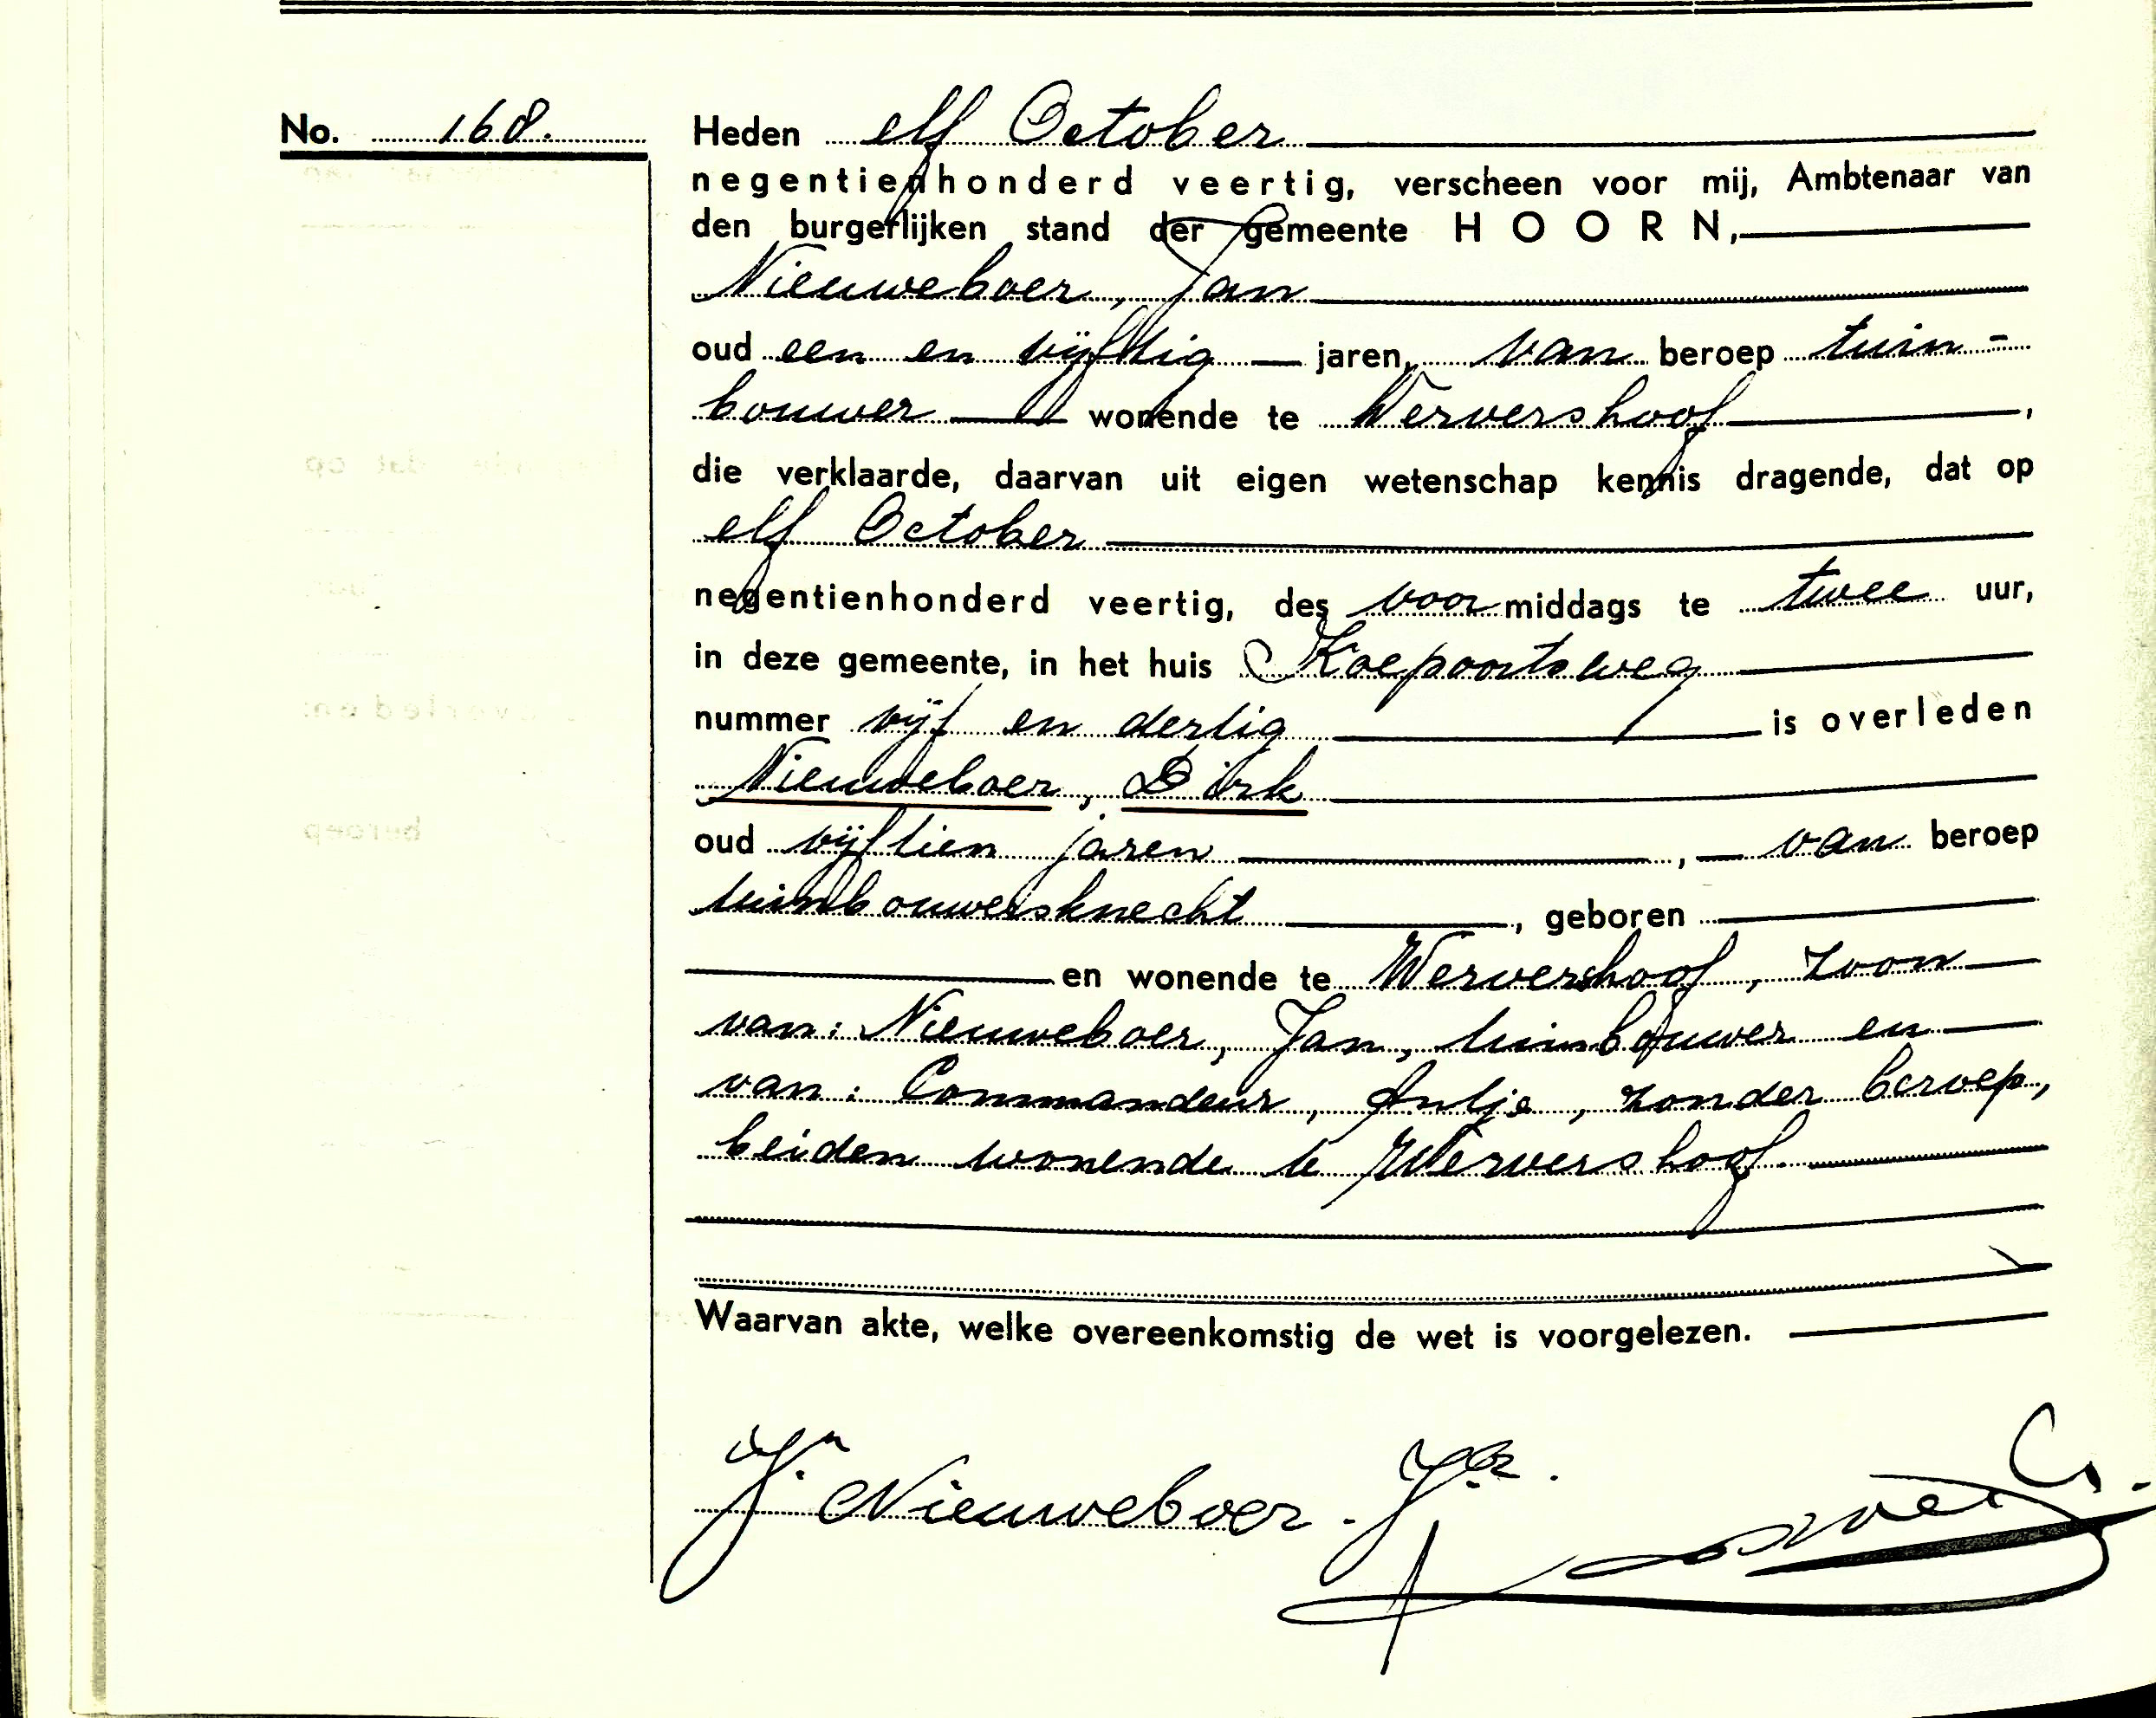 No. 168.
Heden elf October
negentienhonderd veertig, verscheen voor mij, Ambtenaar van
den burgerlijken stand der gemeente HOORN,
Nieuweboer, Jan
oud een en vijftig jaren, van beroep tuin-
bouwer wonende te Wervershoof,
die verklaarde, daarvan uit eigen wetenschap kennis dragende, dat op
elf October
negentienhonderd veertig, des voormiddags te twee uur,
in deze gemeente, in het huis Koepoortsweg
nummer vijf en dertig is overleden
Nieuweboer, Dirk
oud vijftien jaren, van beroep
tuinbouwersknecht, geboren
en wonende te Wervershoof, zoon
van: Nieuweboer, Jan, tuinbouwer en
van: Commandeur, Antje, zonder beroep,
beiden wonende te Wervershoof.
Waarvan akte, welke overeenkomstig de wet is voorgelezen.
Jn. Nieuweboer. Jz.